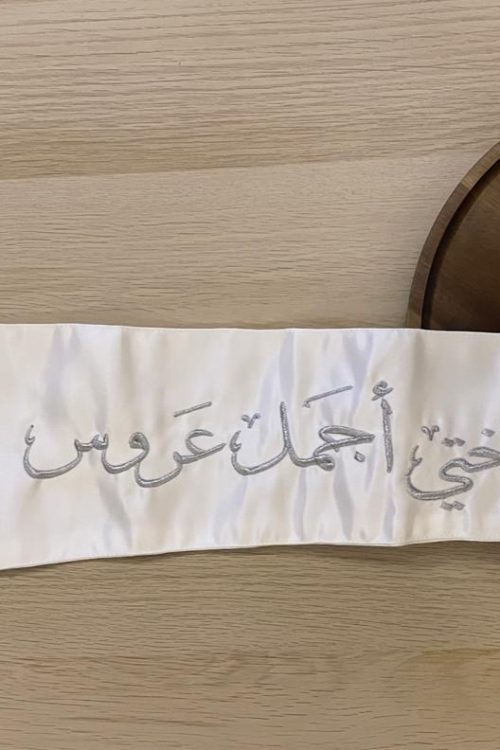 ختي أجمل عروس